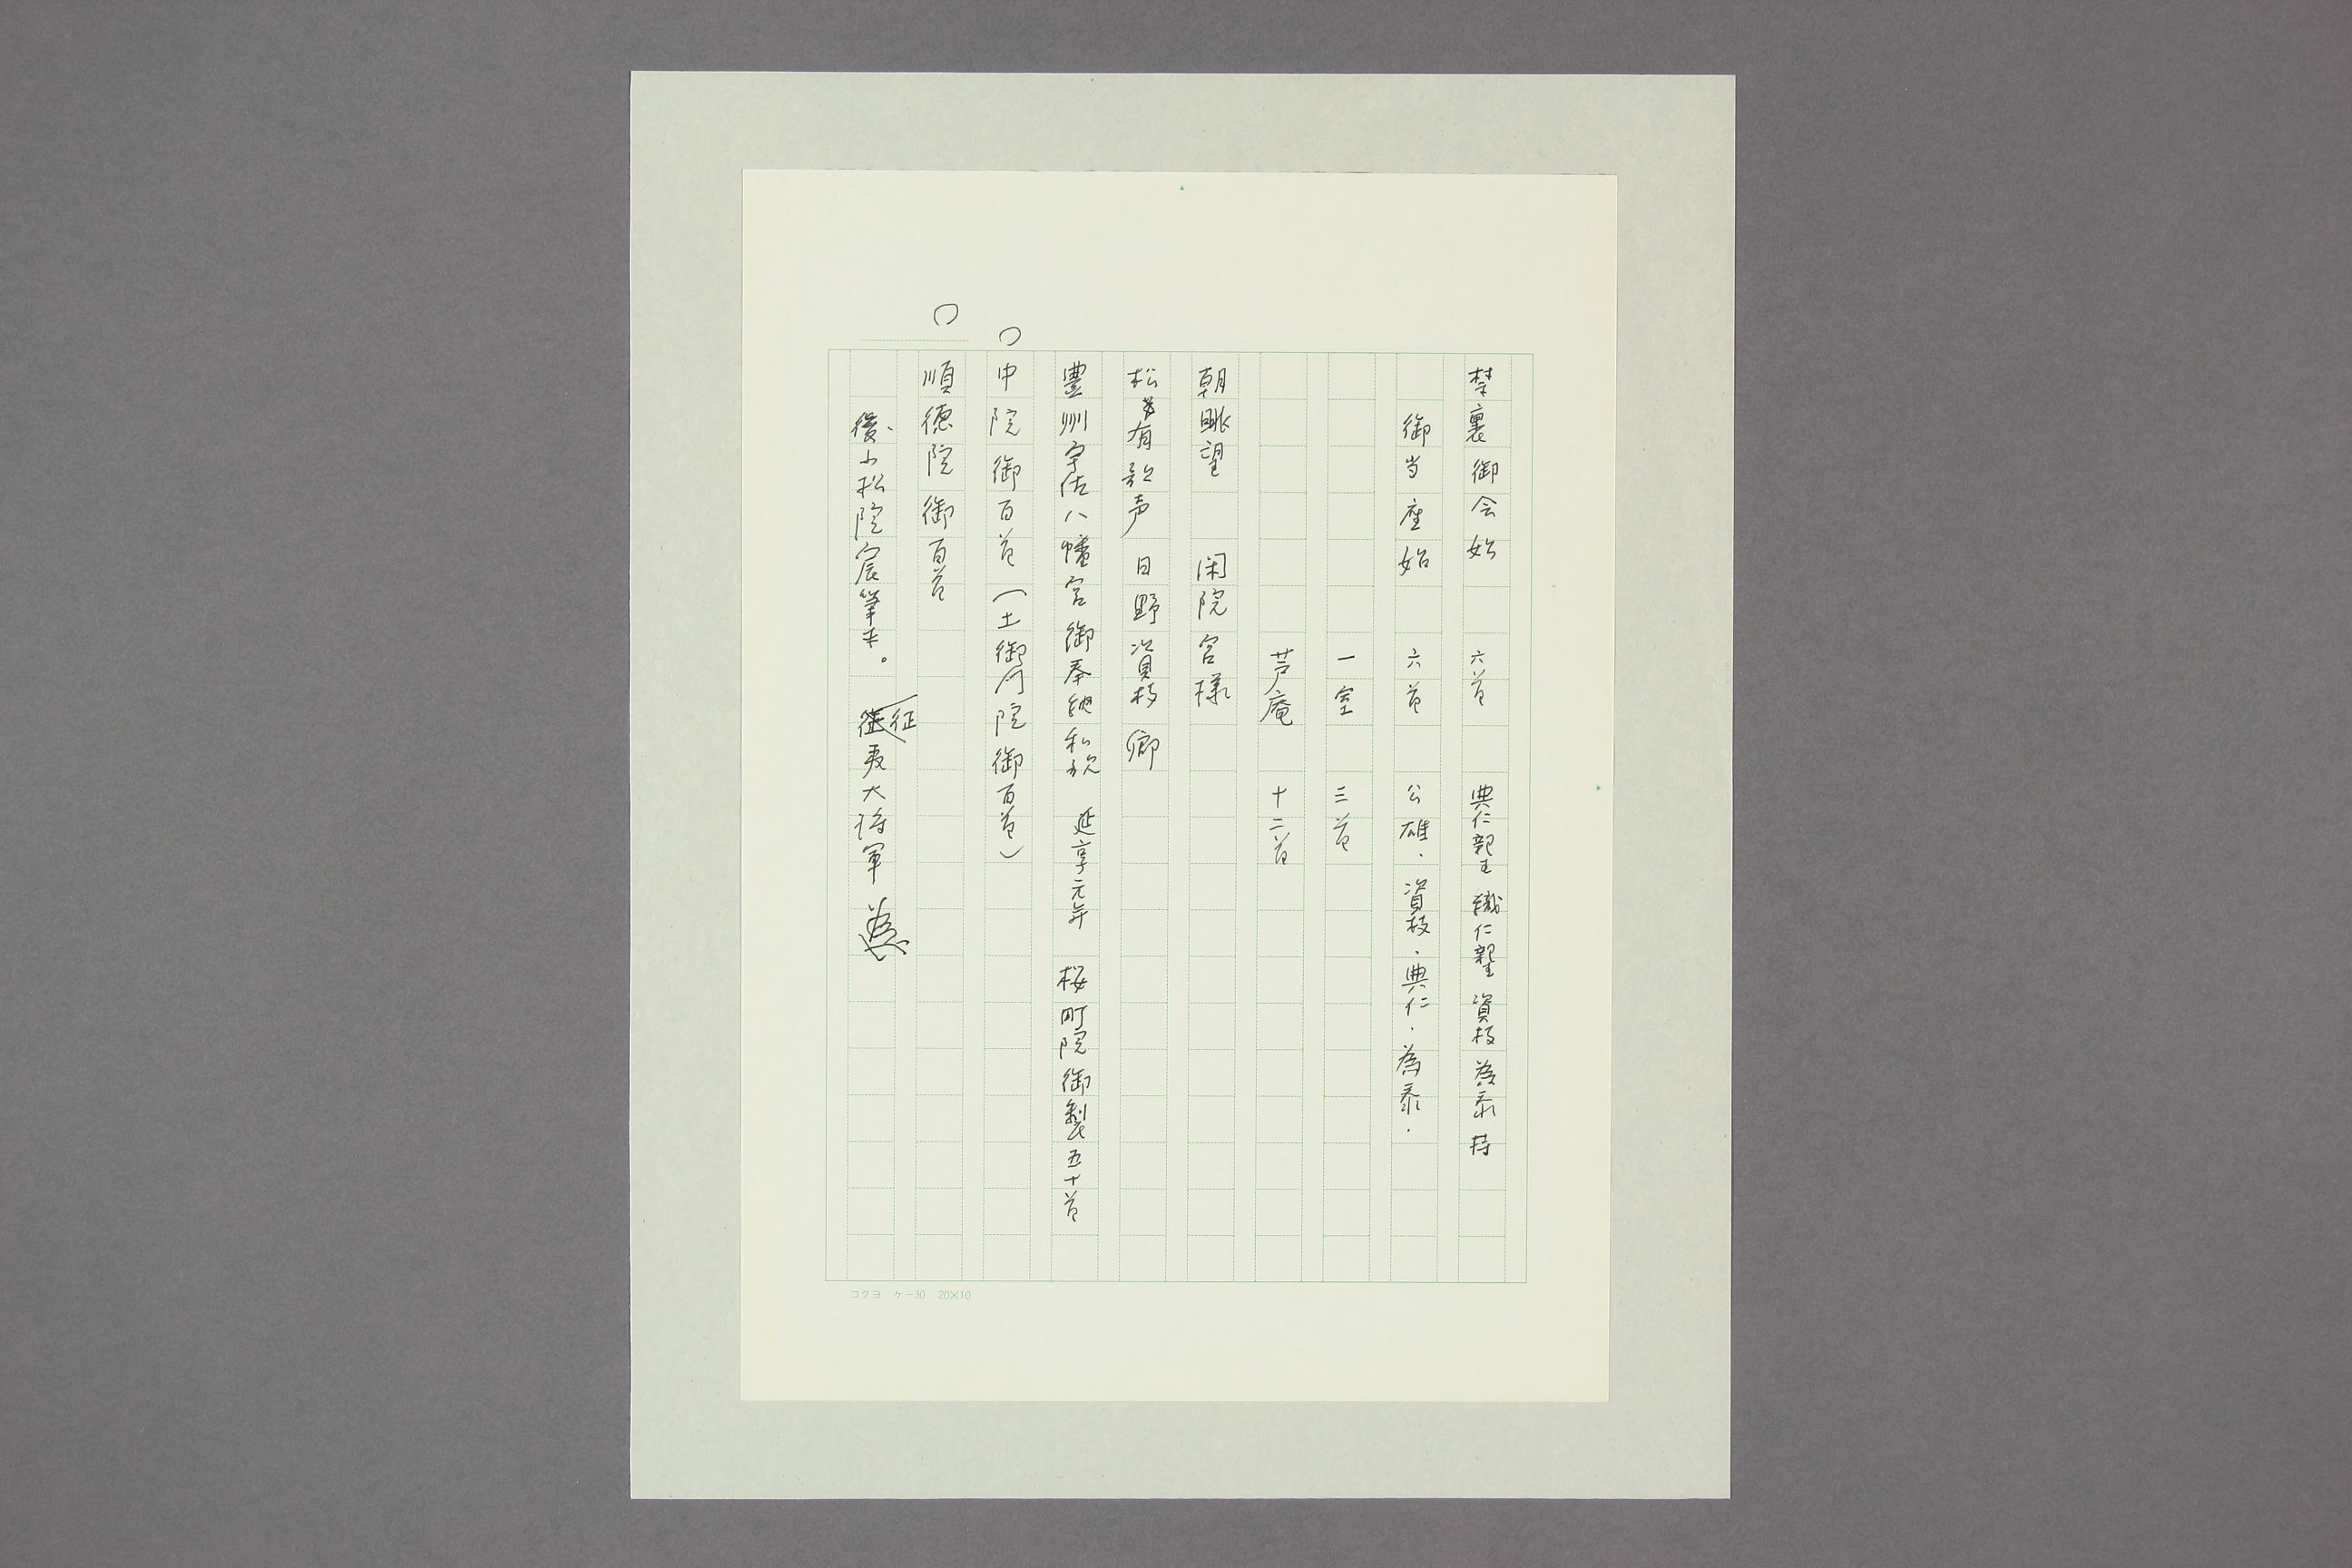 禁裏御会始 六首 典仁親王 織仁親王 資枝 為泰 持
御当座始 六首 公雄・資枝・典仁・為泰・
一室 三首
芦庵 十二首
朝眺望 閑院宮様
松有歓声 日野資枝卿
豊州宇佐八幡宮御奉納和歌 延享元年 桜町院御製五十首
〇中院御百首(土御門院御百首)
〇順徳院御百首
後小松院宸筆本。 征夷大将軍
コクヨ ケー30 20×10